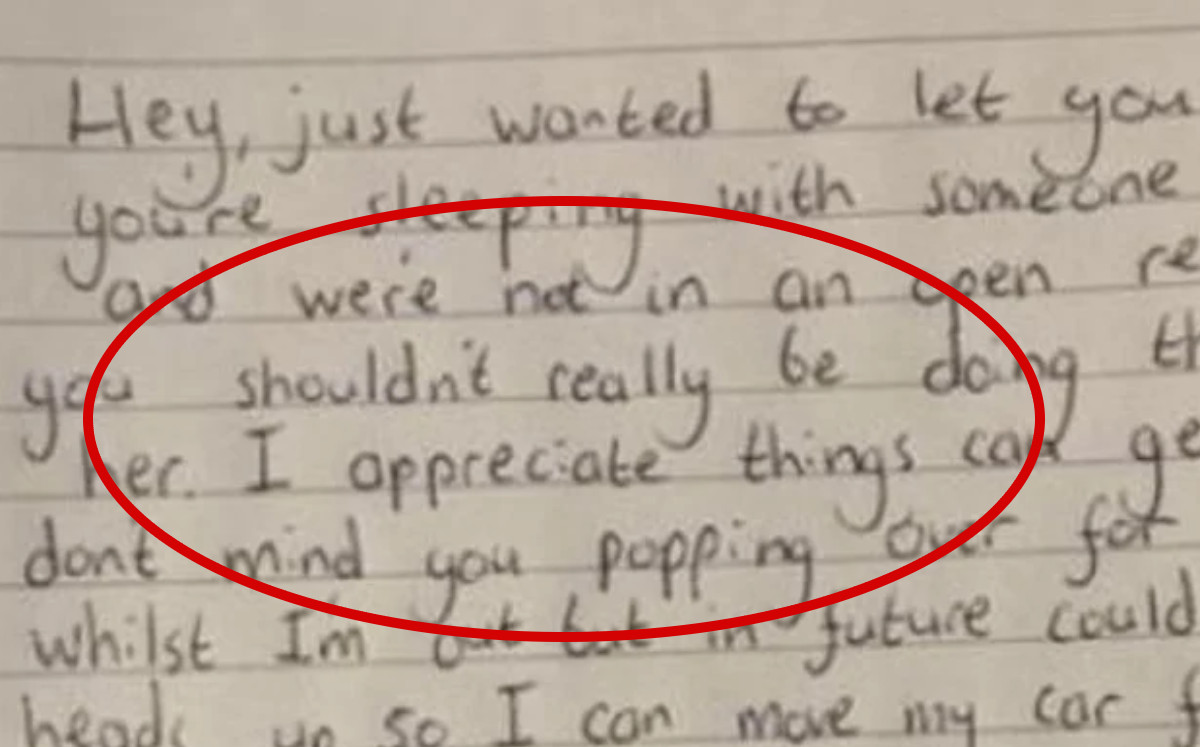 Hey, just wanted to let you
you're sleeping with someone
and we're not in an open re
you shouldn't really be doing th
her. I appreciate things can ge
dont mind you popping over for
whilst Im out but in future could
heads up so I can move my car f